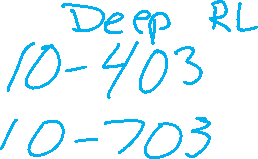 Deep RL
10-403
10-703